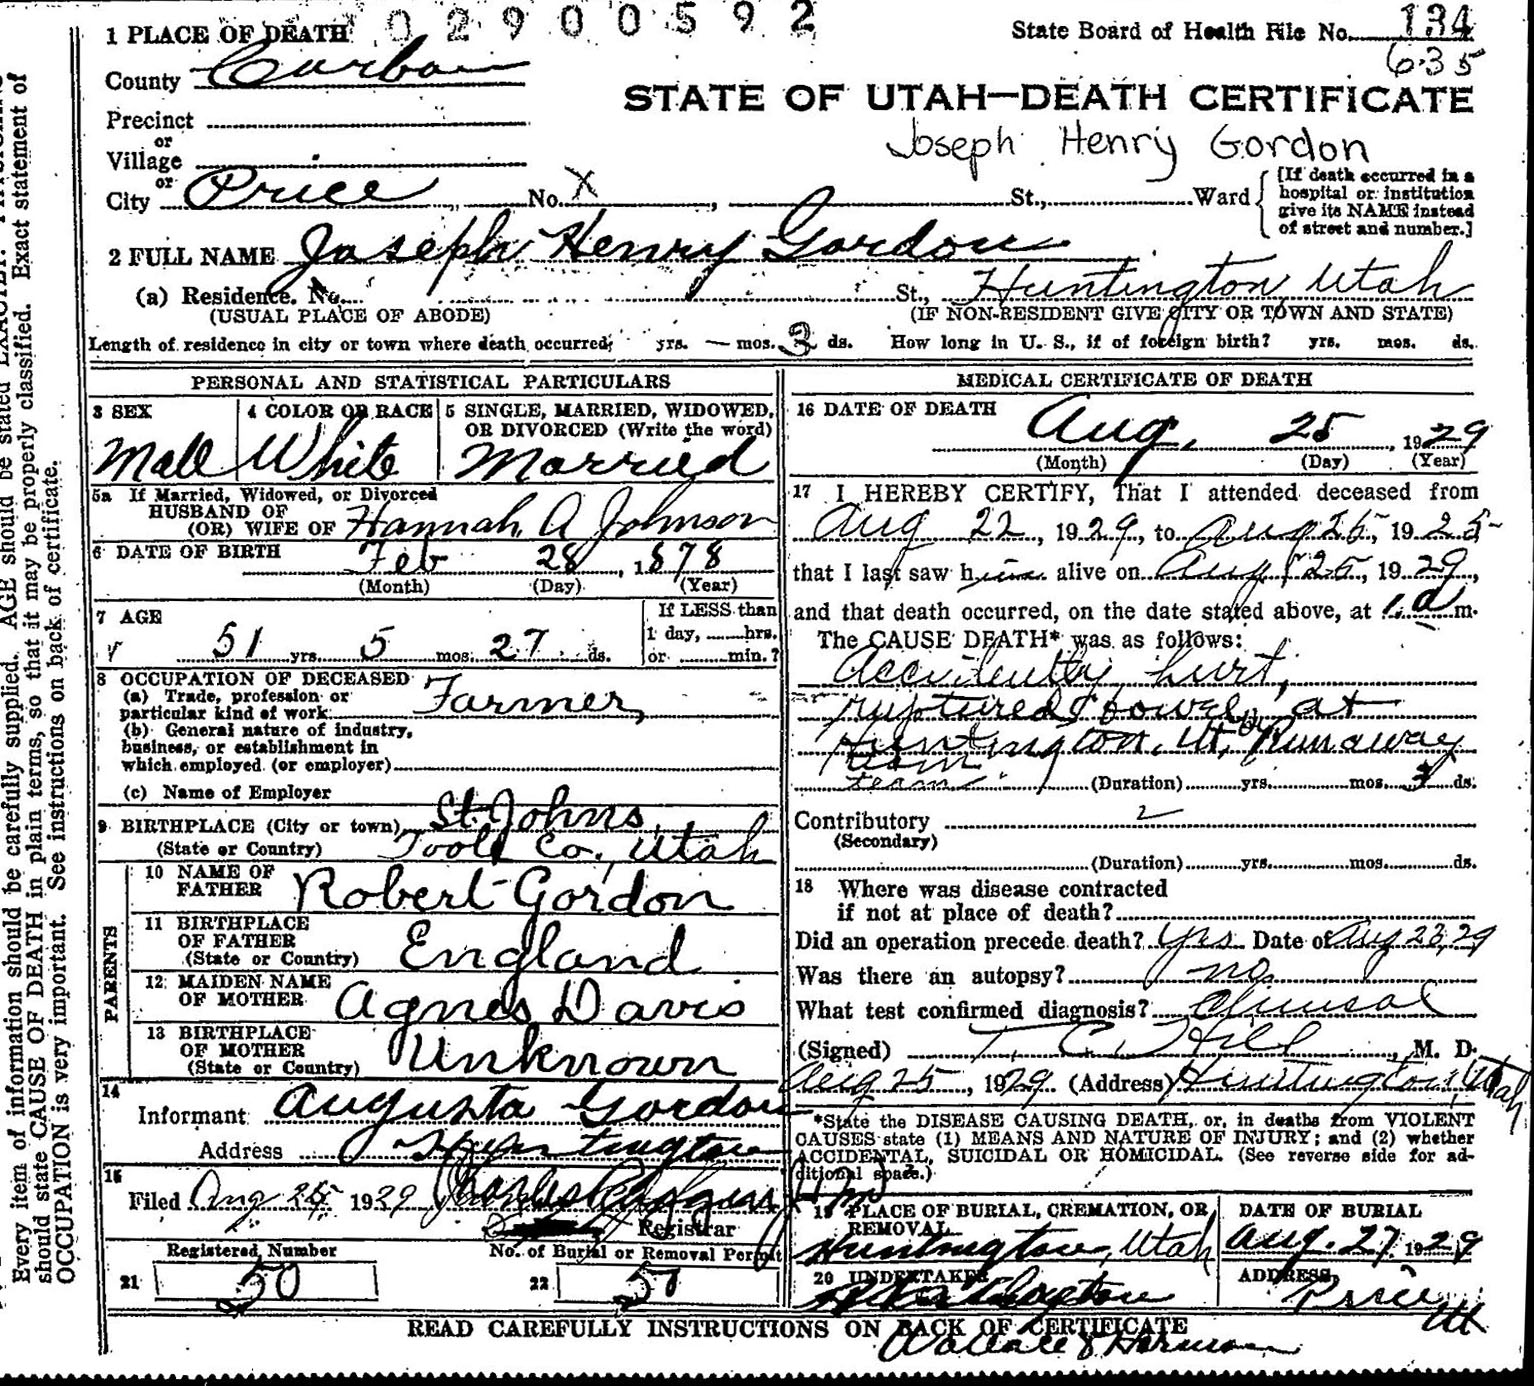 02900592
State Board of Health File No. 134
635
1 PLACE OF DEATH
County Carbon
STATE OF UTAH—DEATH CERTIFICATE
Precinct
or
Joseph Henry Gordon
Village
or
City Price No. X St., Ward
[If death occurred in a
hospital or institution
give its NAME instead
of street and number.]
2 FULL NAME Joseph Henry Gordon
(a) Residence. No. St., Huntington, Utah
(USUAL PLACE OF ABODE) (IF NON-RESIDENT GIVE CITY OR TOWN AND STATE)
Length of residence in city or town where death occurred; yrs. — mos. 3 ds. How long in U. S., if of foreign birth? yrs. mos. ds.
PERSONAL AND STATISTICAL PARTICULARS
3 SEX
Male
4 COLOR OR RACE
White
5 SINGLE, MARRIED, WIDOWED,
OR DIVORCED (Write the word)
Married
5a If Married, Widowed, or Divorced
HUSBAND OF
(OR) WIFE OF Hannah A Johnson
6 DATE OF BIRTH Feb 28, 1878
(Month) (Day) (Year)
7 AGE
51 yrs. 5 mos. 27 ds.
If LESS than
1 day, hrs.
or min.?
8 OCCUPATION OF DECEASED
(a) Trade, profession or
particular kind of work Farmer
(b) General nature of industry,
business, or establishment in
which employed (or employer)
(c) Name of Employer
9 BIRTHPLACE (City or town) St. Johns
(State or Country) Toole Co., Utah
PARENTS
10 NAME OF
FATHER Robert Gordon
11 BIRTHPLACE
OF FATHER
(State or Country) England
12 MAIDEN NAME
OF MOTHER Agnes Davis
13 BIRTHPLACE
OF MOTHER
(State or Country) Unknown
14
Informant Augusta Gordon
Address Huntington
15
Filed Aug 25 1929
Registrar
Registered Number
21 50
No. of Burial or Removal Permit
22 50
MEDICAL CERTIFICATE OF DEATH
16 DATE OF DEATH
Aug. 25, 1929
(Month) (Day) (Year)
17 I HEREBY CERTIFY, That I attended deceased from
Aug 22, 1929, to Aug 25, 1925
that I last saw him alive on Aug 25, 1929,
and that death occurred, on the date stated above, at 1. a m.
The CAUSE DEATH* was as follows:
Accidently hurt,
ruptured bowel, at
Huntington, Ut, by Runaway
team
team (Duration) yrs. mos. 3 ds.
Contributory
(Secondary)
(Duration) yrs. mos. ds.
18 Where was disease contracted
if not at place of death?
Did an operation precede death? Yes Date of Aug 23, 29
Was there an autopsy? no
What test confirmed diagnosis?
(Signed) T. C. Hill, M. D.
Aug 25, 1929 (Address) Huntington, Utah
*State the DISEASE CAUSING DEATH, or, in deaths from VIOLENT
CAUSES state (1) MEANS AND NATURE OF INJURY; and (2) whether
ACCIDENTAL, SUICIDAL OR HOMICIDAL. (See reverse side for ad-
ditional space.)
19 PLACE OF BURIAL, CREMATION, OR
REMOVAL
Huntington, Utah
DATE OF BURIAL
Aug. 27, 1929
20 UNDERTAKER
ADDRESS
Price Ut
READ CAREFULLY INSTRUCTIONS ON BACK OF CERTIFICATE
Wallace & Harmon
Every item of information should be carefully supplied. AGE should be stated EXACTLY.
should state CAUSE OF DEATH in plain terms, so that it may be properly classified. Exact statement of
OCCUPATION is very important. See instructions on back of certificate.